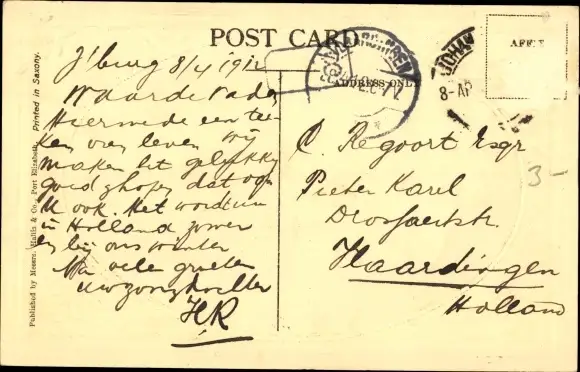 POST CARD
ADDRESS ONLY
AFFIX
J'burg 8/4 1912
Waarde Vader
Hiermede een tee-
ken van leven. Wij
maken het gelukkig
goed & hopen dat op
U ook. Het wordt nu
in Holland zomer
en bij ons winter
Met vele groeten
uw zoon
HR
C. Regoort Esqr
Pieter Karel
Drossaertstr.
Vlaardingen
Holland
3-
VLAARDINGEN
JOHAN
8-AP
Published by Messrs. Hallis & Co., Port Elizabeth. Printed in Saxony.